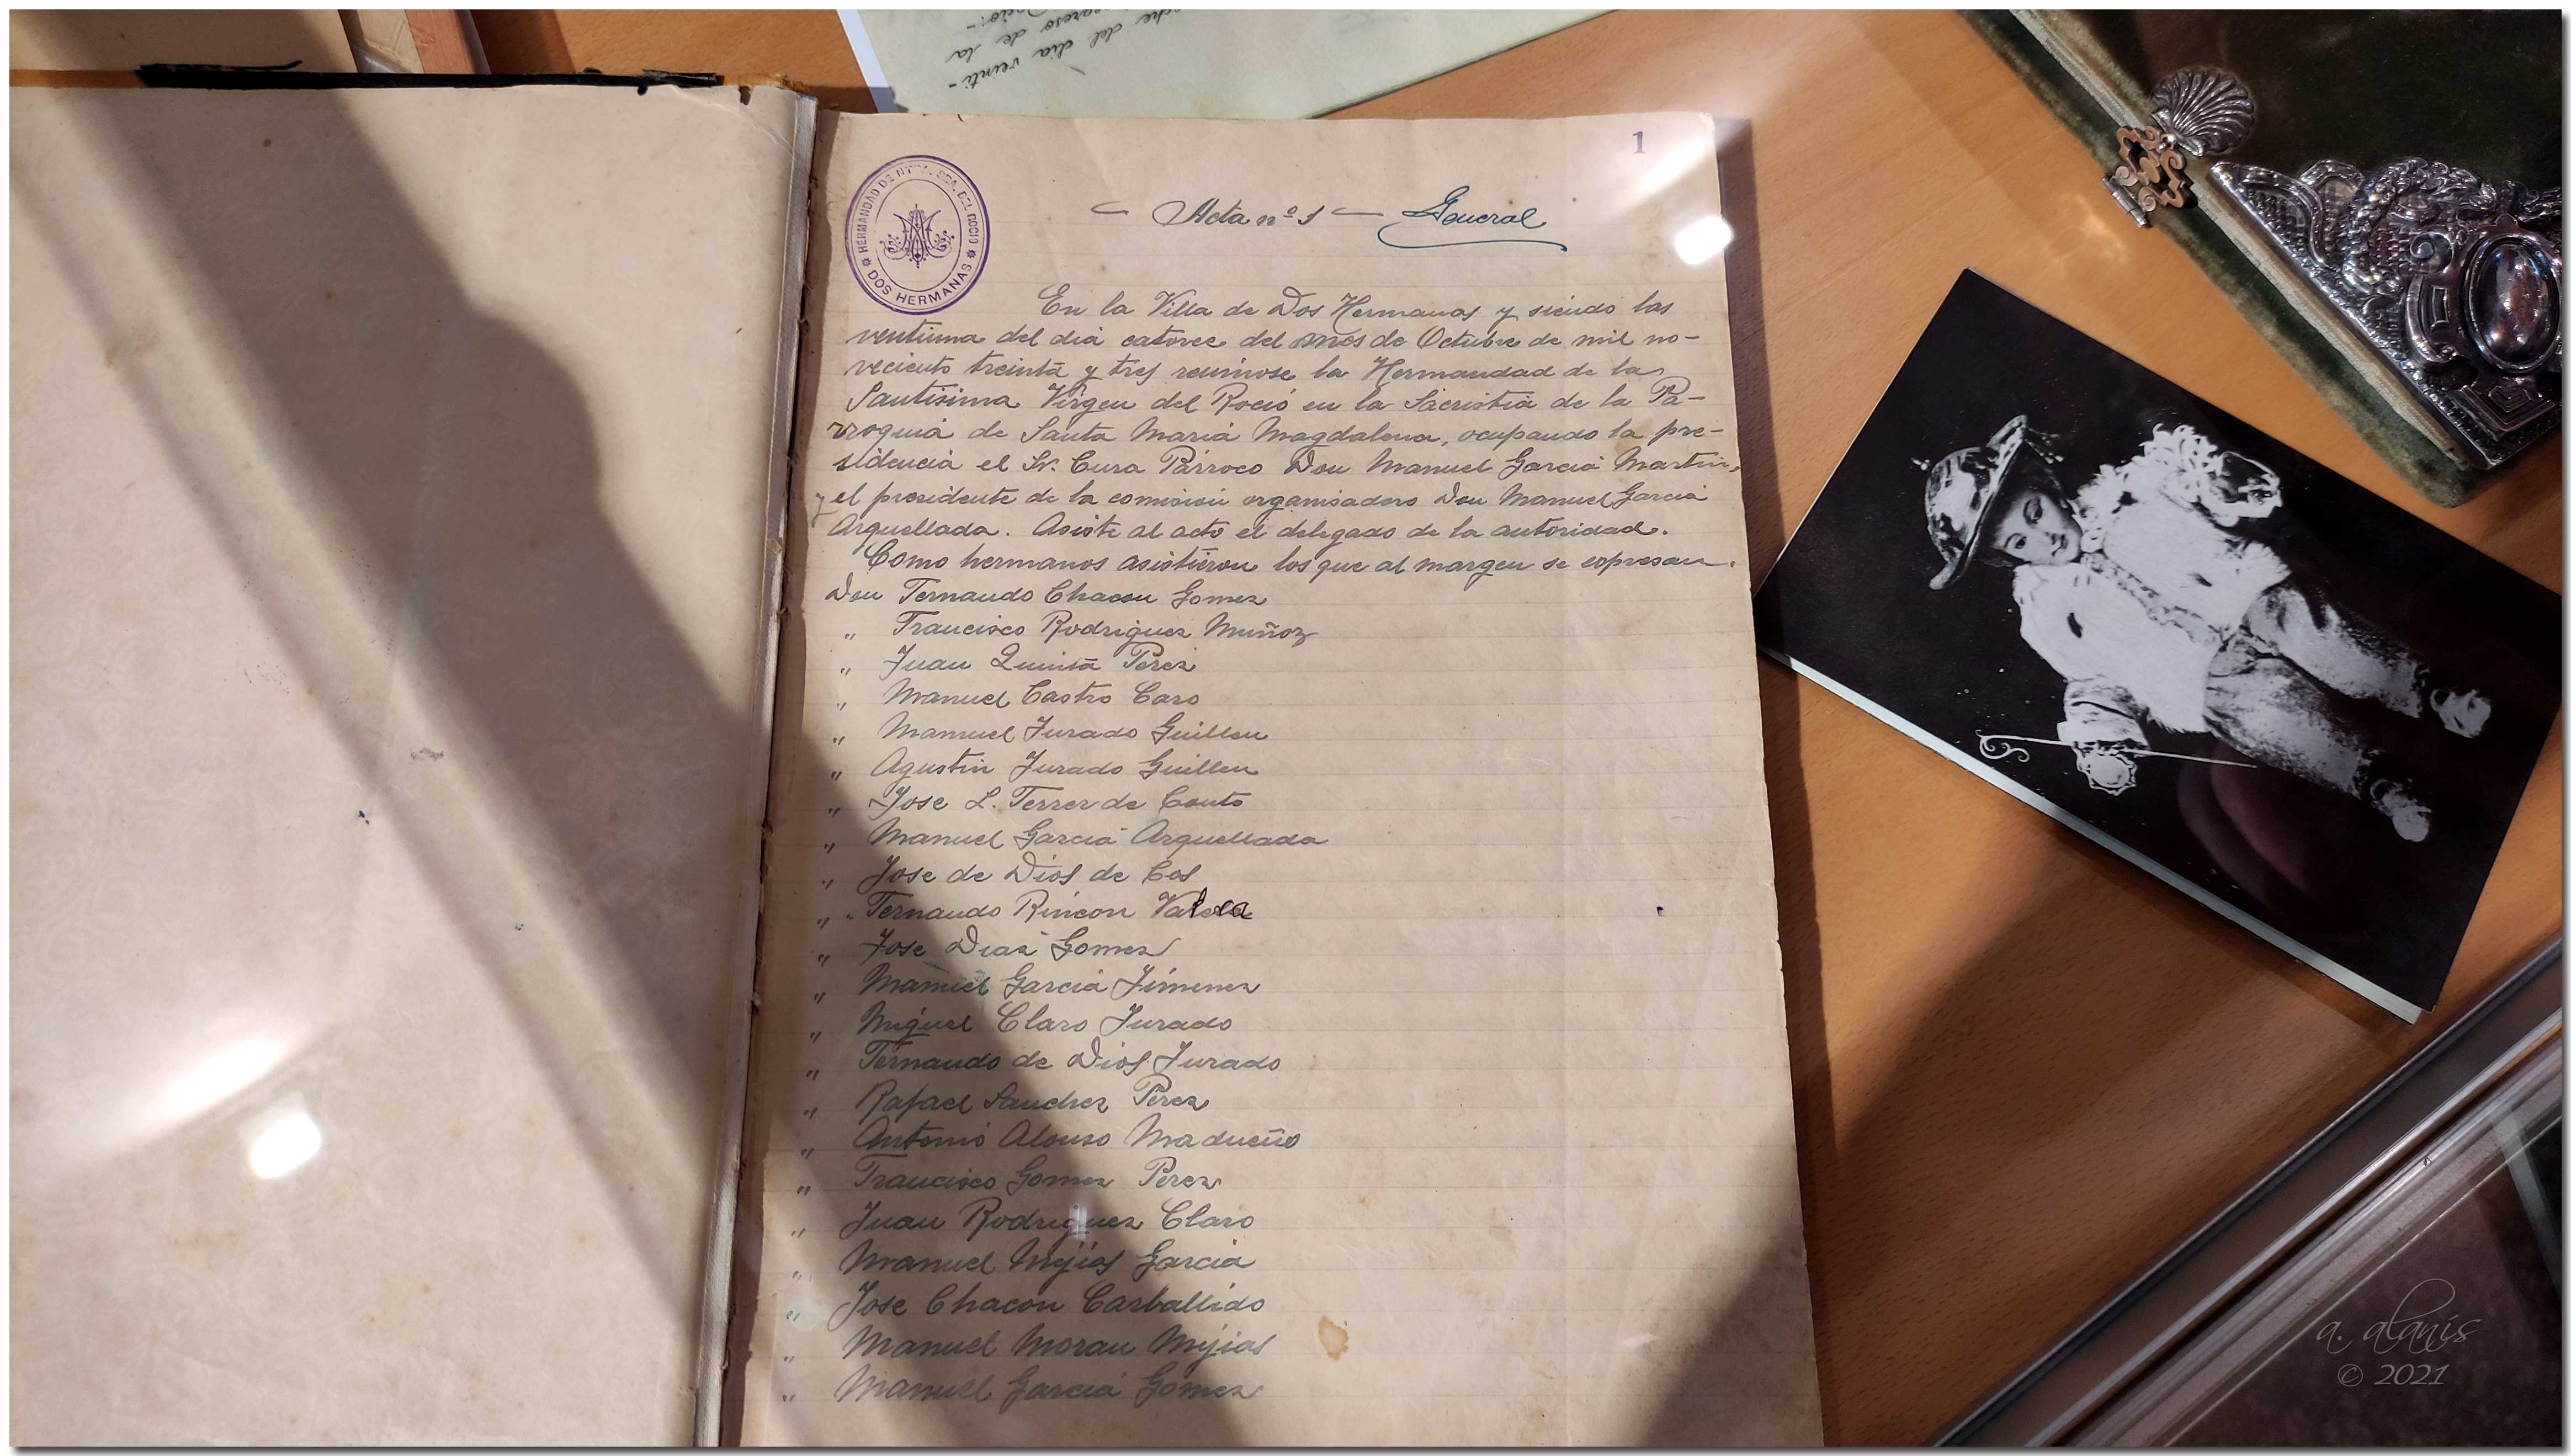 che del dia veinti-
greso de la
Rocio:-
1
HERMANDAD DE NTRA. SRA. DEL ROCIO
DOS HERMANAS
— Acta nº 1 — General
En la Villa de Dos Hermanas y siendo las
ventiuna del dia catorce del mes de Octubre de mil no-
veciento treinta y tres reuniose la Hermandad de la
Santisima Virgen del Roció en la Sacristia de la Pa-
rroquia de Santa Maria Magdalena, ocupando la pre-
sidencia el Sr. Cura Párroco Don Manuel Garcia Martin,
y el presidente de la comisión organisadora Don Manuel Garcia
Arquellada. Asiste al acto el delegado de la autoridad.
Como hermanos asistieron los que al margen se expresan.
Don Fernando Chacon Gomez
" Francisco Rodriguez Muñoz
" Juan Quinta Perez
" Manuel Castro Caro
" Manuel Jurado Guillen
" Agustin Jurado Guillen
" Jose L. Ferrer de Couto
" Manuel Garcia Arquellada
" Jose de Dios de Cos
" Fernando Rincon Varela
" Jose Diaz Gomez
" Manuel Garcia Jimenez
" Miguel Claro Jurado
" Fernando de Dios Jurado
" Rafael Sanchez Perez
" Antonio Alonso Madueño
" Francisco Gomez Perez
" Juan Rodriguez Claro
" Manuel Mejias Garcia
" Jose Chacon Carballido
" Manuel Moran Mejias
" Manuel Garcia Gomez
a. alanís
© 2021